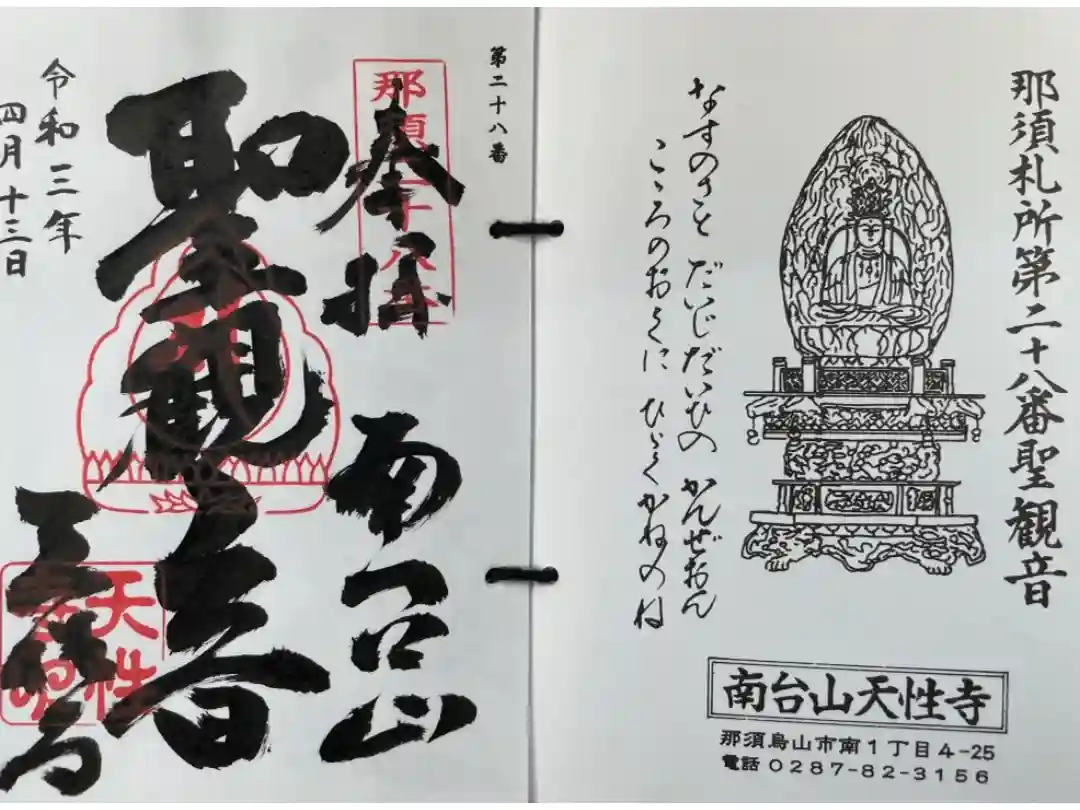 那須札所第二十八番聖観音
なすのさと だいじだいひの かんぜおん
こころのおくに ひゞくかねのね
南台山天性寺
那須烏山市南1丁目4-25
電話 0287-82-3156
第二十八番
奉拝 南台山
聖観音
天性寺
令和三年
四月十三日